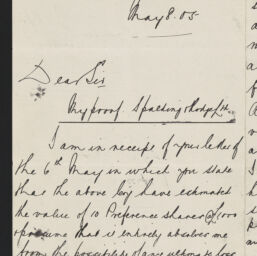 May 8. 05
Dear Sir
My proof Spalding & Hodge Ltd
I am in receipt of your letter of
the 6th May in which you state
that the above Coy have estimated
the value of 10 Preference shares @
that is entirely absolves me
from the possibility of any